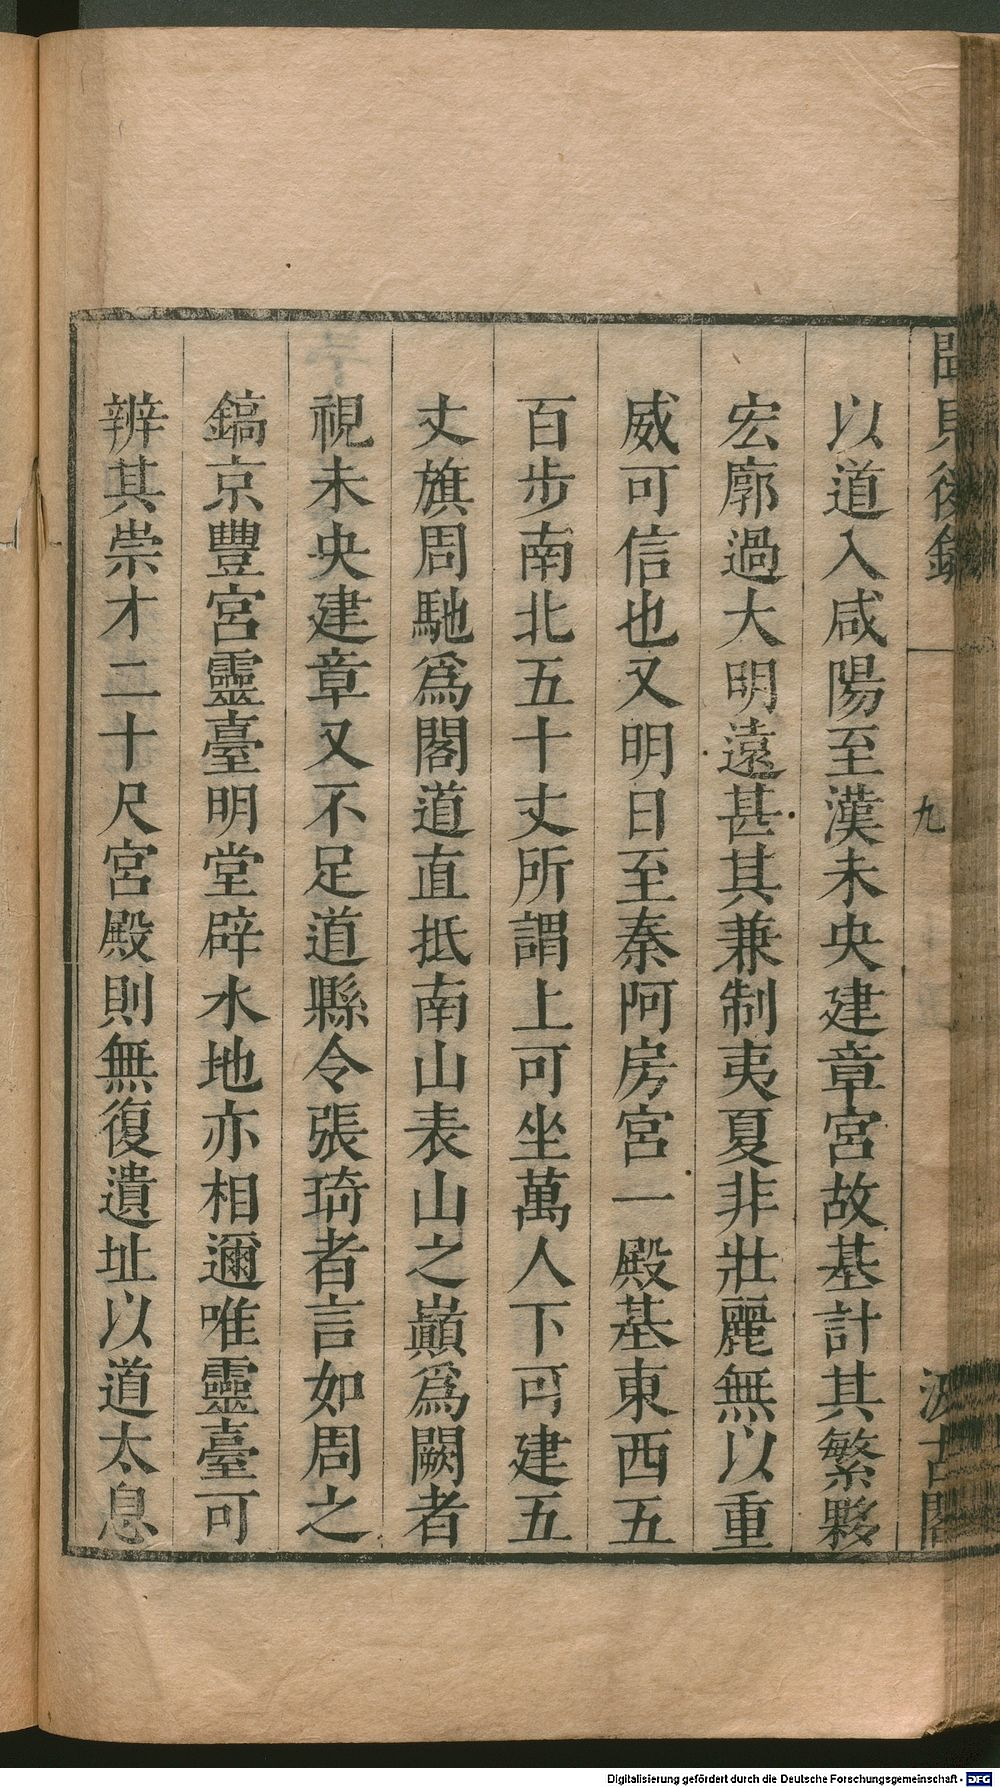 聞見後錄
九
汲古閣
以道入咸陽至漢未央建章宮故基計其繁夥
宏廓過大明遠甚其兼制夷夏非壯麗無以重
威可信也又明日至秦阿房宮一殿基東西五
百步南北五十丈所謂上可坐萬人下可建五
丈旗周馳爲閣道直抵南山表山之巔爲闕者
視未央建章又不足道縣令張琦者言如周之
鎬京豐宮靈臺明堂辟水地亦相邇唯靈臺可
辨其崇才二十尺宮殿則無復遺址以道太息
Digitalisierung gefördert durch die Deutsche Forschungsgemeinschaft - DFG